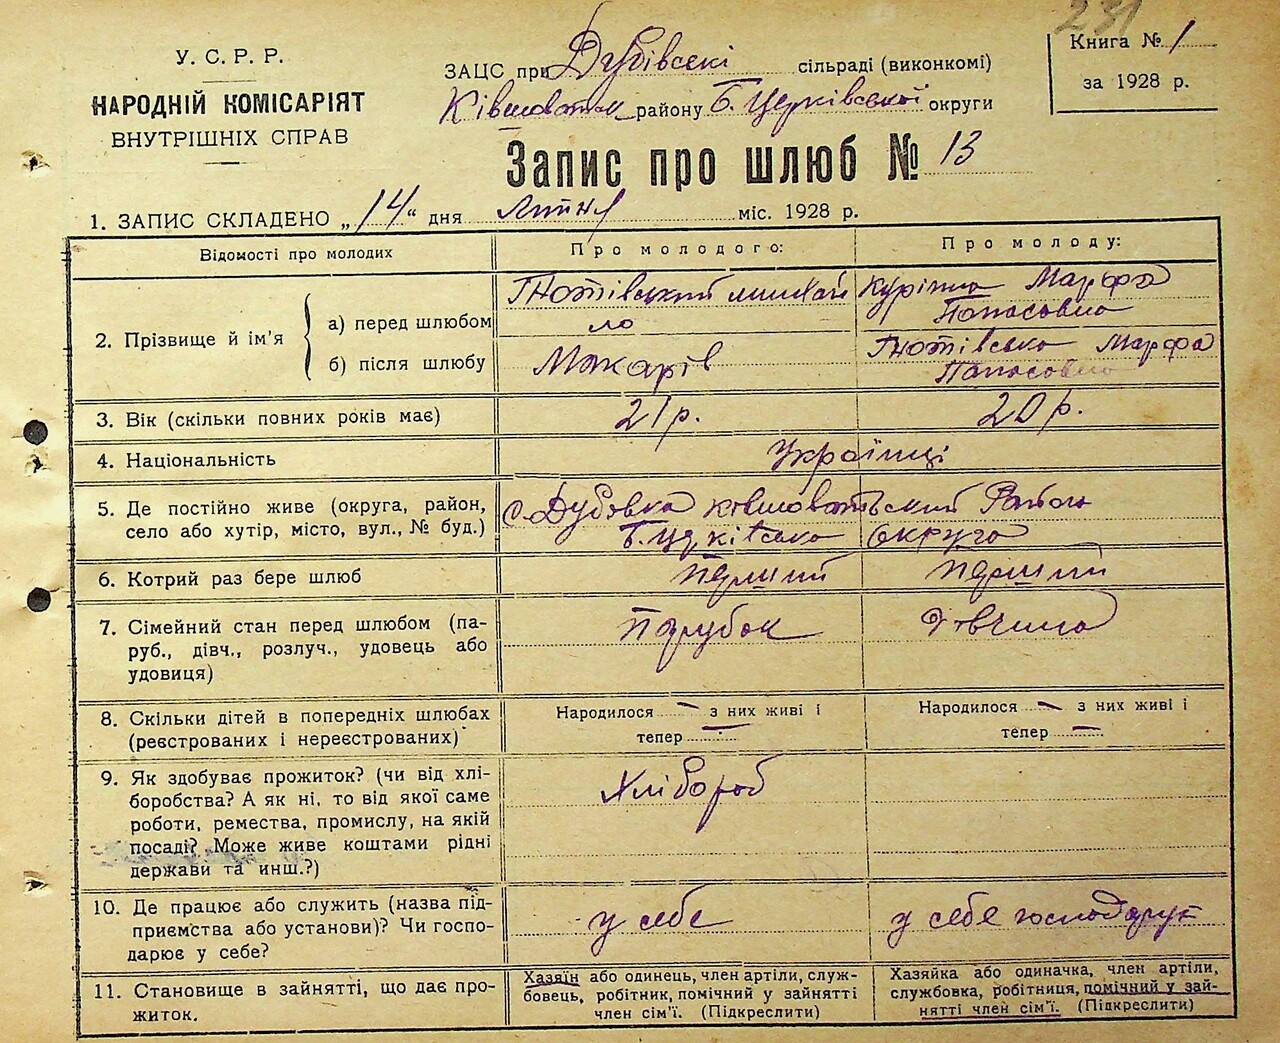 231
У. С. Р. Р.
НАРОДНІЙ КОМІСАРІЯТ
ВНУТРІШНІХ СПРАВ
ЗАЦС при Дубівські сільраді (виконкомі)
району Б. Церківської округи
Книга № 1
за 1928 р.
Запис про шлюб № 13
1. ЗАПИС СКЛАДЕНО „14“ дня липня міс. 1928 р.
Відомості про молодих
Про молодого:
Про молоду:
2. Прізвище й ім'я
а) перед шлюбом
б) після шлюбу
Гнотівський михай
ло
Макарів
Марфа
Панасовна
Гнотівська Марфа
Панасовна
3. Вік (скільки повних років має)
21 р.
20 р.
4. Національність
Українці
5. Де постійно живе (округа, район,
село або хутір, місто, вул., № буд.)
с. Дубовка ковшоватьський Район
округа
6. Котрий раз бере шлюб
перший
перший
7. Сімейний стан перед шлюбом (па-
руб., дівч., розлуч., удовець або
удовиця)
Парубок
Дівчина
8. Скільки дітей в попередніх шлюбах
(реєстрованих і нереєстрованих)
Народилося — з них живі і
тепер —
Народилося — з них живі і
тепер —
9. Як здобуває прожиток? (чи від хлі-
боробства? А як ні, то від якої саме
роботи, ремества, промислу, на якій
посаді? Може живе коштами рідні
держави та инш.?)
Хлібороб
10. Де працює або служить (назва під-
приємства або установи)? Чи госпо-
дарює у себе?
у себе
у себе господарує
11. Становище в зайнятті, що дає про-
житок.
Хазяїн або одинець, член артілі, служ-
бовець, робітник, помічний у зайнятті
член сім'ї. (Підкреслити)
Хазяйка або одиначка, член артіли,
службовка, робітниця, помічний у зай-
нятті член сім'ї. (Підкреслити)